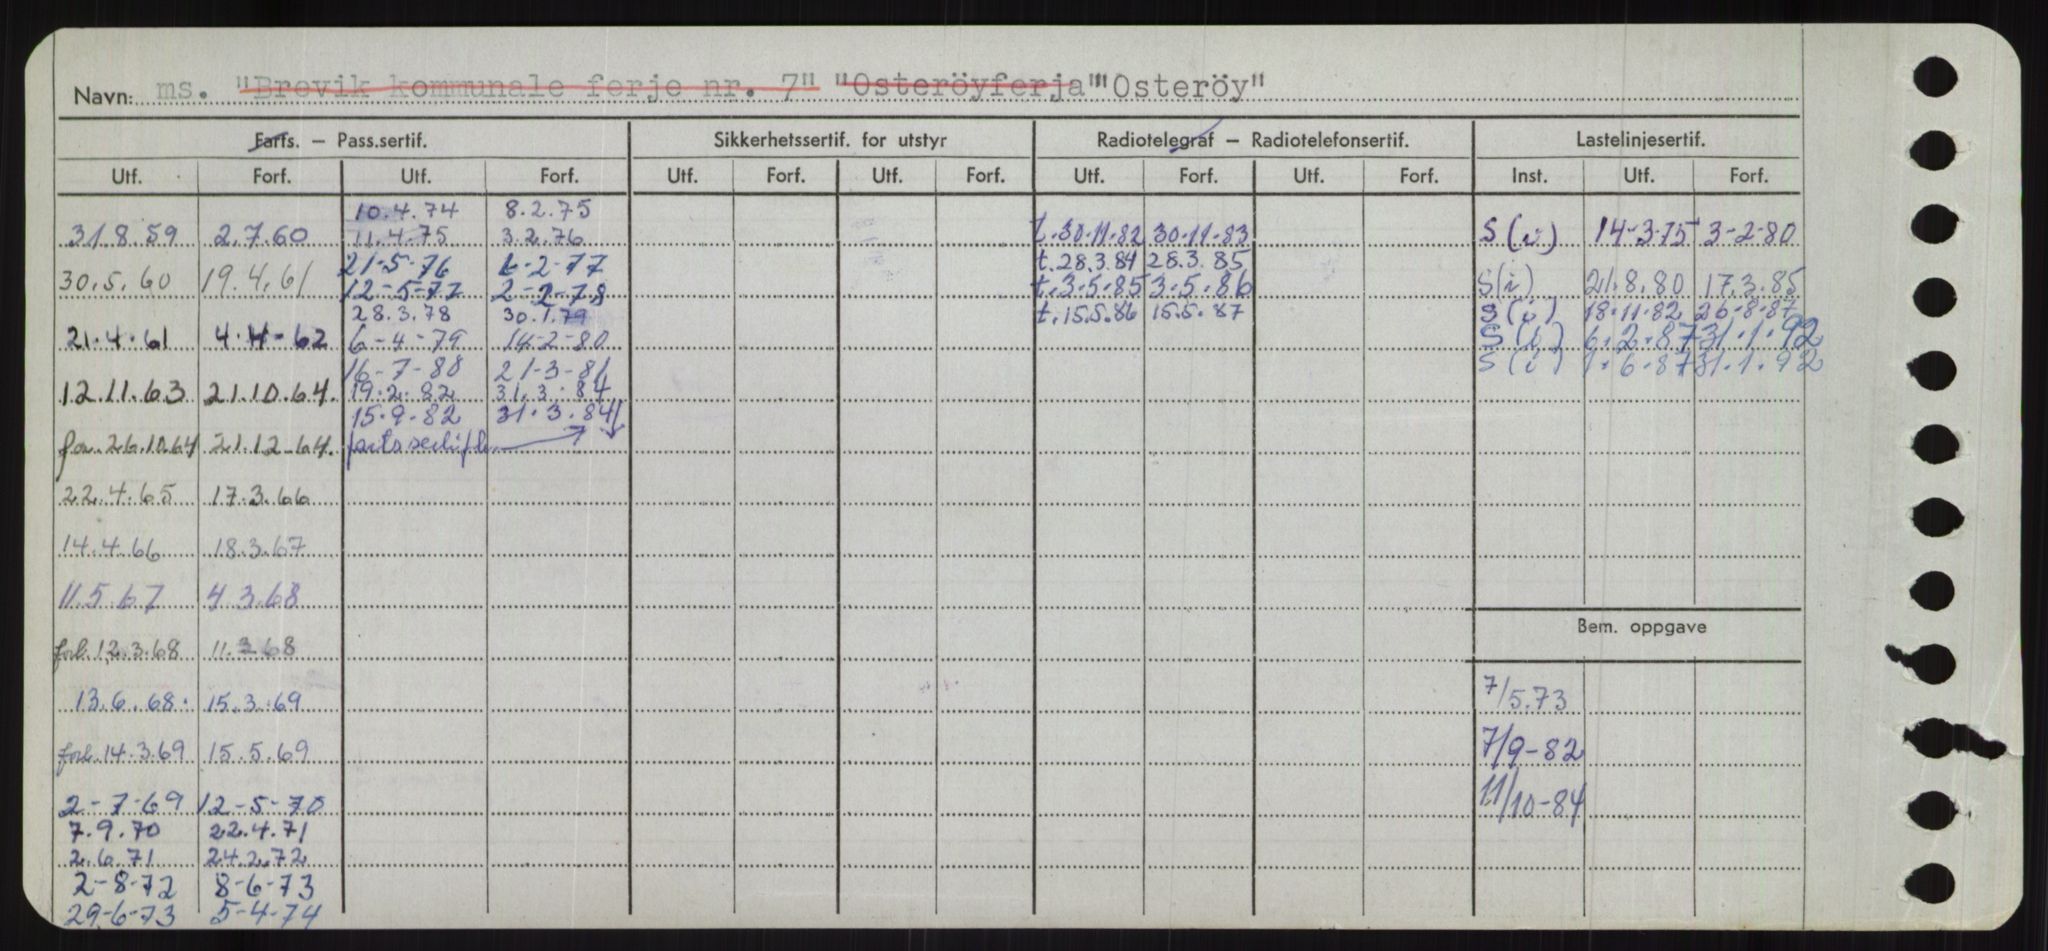 Navn: ms. "Brevik kommunale ferje nr. 7" "Osteröyferja" "Osteröy"
Farts. – Pass.sertif. Sikkerhetssertif. for utstyr Radiotelegraf – Radiotelefonsertif. Lastelinjesertif.
Utf. Forf. Utf. Forf. Utf. Forf. Utf. Forf. Utf. Forf. Utf. Forf. Inst. Utf. Forf.
10.4.74 8.2.75
31.8.59 2.7.60 11.4.75 3.2.76 t.30.11.82 30.11.83 S(i) 14-3-75 3-2-80
21-5-76 6-2-77 t.28.3.84 28.3.85
30.5.60 19.4.61 12-5-77 2-2-78 t.3.5.85 3.5.86 S(i) 21.8.80 17.3.85
28.3.78 30.1.79 t.15.5.86 15.5.87 S(i) 18.11.82 26.8.87
21.4.61 4.4-62 6-4-79 14-2-80 S(i) 6.2.87 31.1.92
16-7-80 21-3-81 S(i) 1.6.87 31.1.92
12.11.63 21.10.64. 19.2.82 31.3.84
15.9.82 31.3.84
26.10.64 21.12.64.
22.4.65 17.3.66
14.4.66 18.3.67
11.5.67 4.3.68
Bem. oppgave
forl. 12.3.68 11.3.68
13.6.68. 15.3.69 7/5.73
forl. 14.3.69 15.5.69 7/9-82
2-7-69 12-5-70 11/10-84
7.9.70 22.4.71
2.6.71 24.2.72
2-8-72 8-6-73
29-6-73 5-4-74